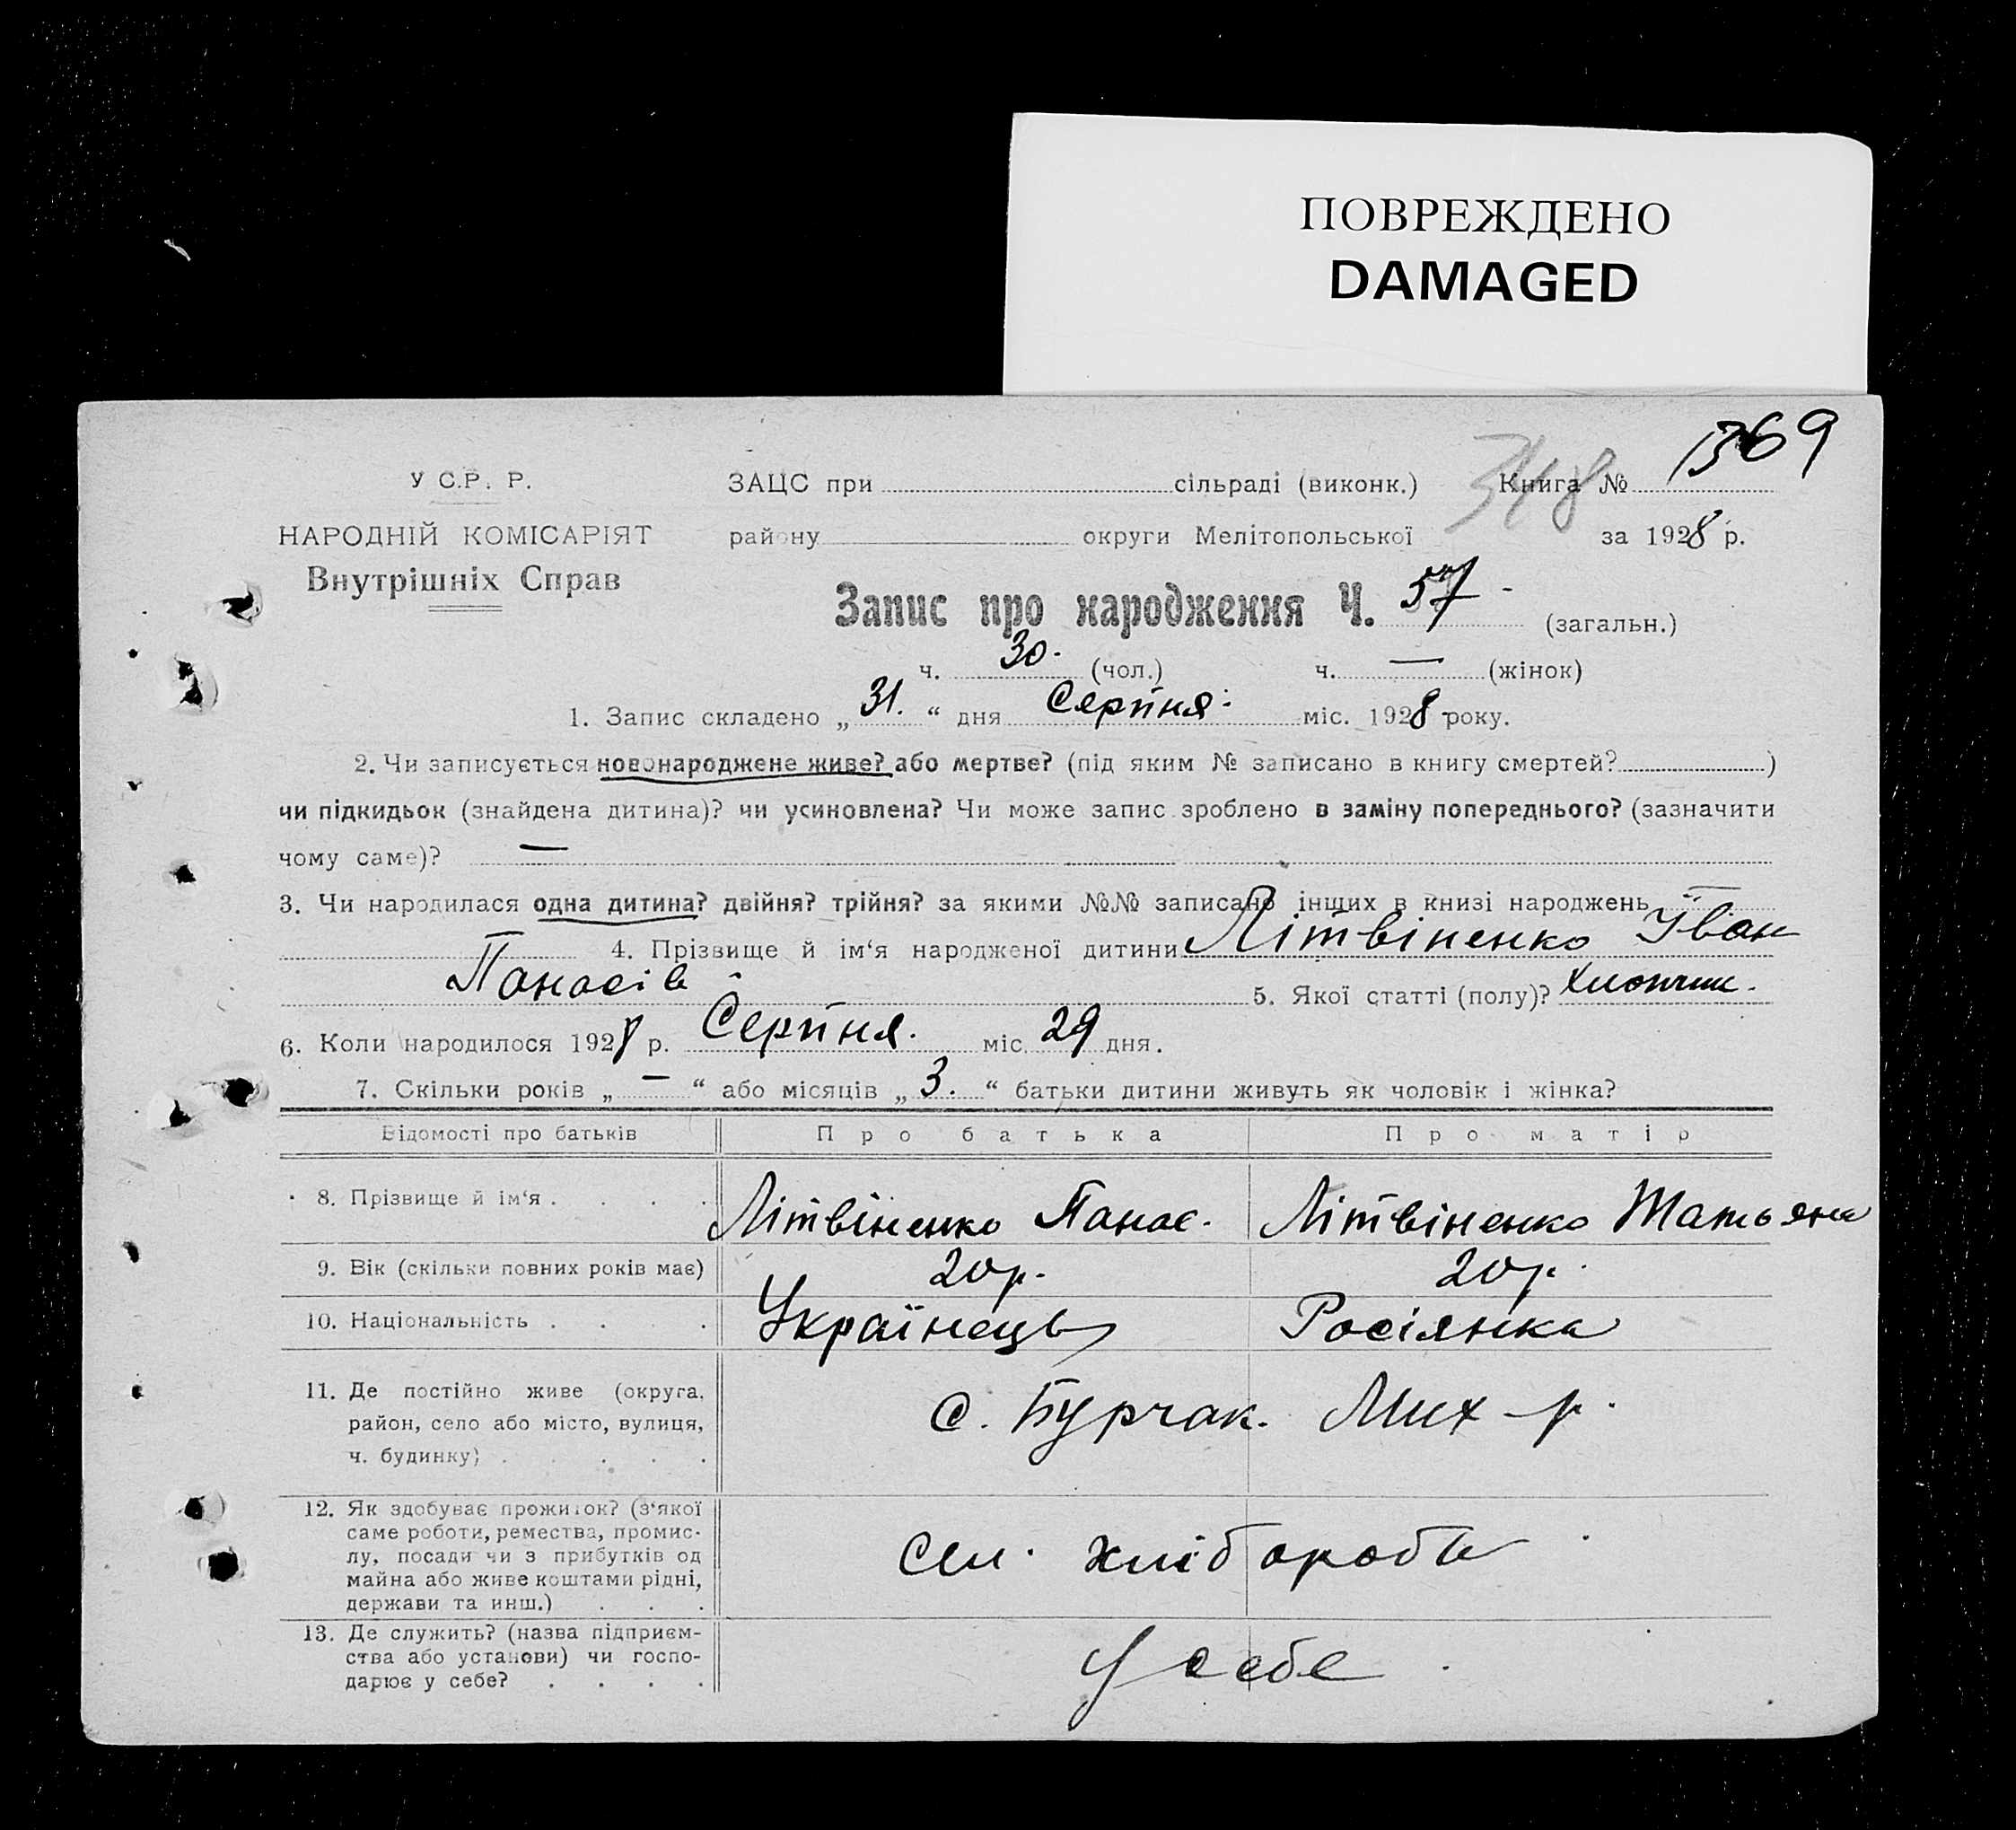 ПОВРЕЖДЕНО
DAMAGED
1369
У С.Р. Р. ЗАЦС при сільраді (виконк.) 348 Книга №
НАРОДНІЙ КОМІСАРІЯТ району округи Мелітопольської за 1928 р.
Внутрішніх Справ
Запис про народження Ч. 57 - (загальн.)
ч. 30. (чол.) ч. — (жінок)
1. Запис складено „ 31. “ дня Серпня міс. 1928 року.
2. Чи записується новонароджене живе? або мертве? (під яким № записано в книгу смертей? )
чи підкидьок (знайдена дитина)? чи усиновлена? Чи може запис зроблено в заміну попереднього? (зазначити
чому саме)? —
3. Чи народилася одна дитина? двійня? трійня? за якими №№ записано інших в книзі народжень —
4. Прізвище й ім‘я народженої дитини Літвіненко Іван
Панасів 5. Якої статті (полу)? Хлопчик.
6. Коли народилося 1928 р. Серпня. міс. 29 дня.
7. Скільки років „ — “ або місяців „ 3. “ батьки дитини живуть як чоловік і жінка?
Відомості про батьків Про батька Про матір
8. Прізвище й ім‘я . . . . Літвіненко Панас. Літвіненко Татьяна
9. Вік (скільки повних років має) 20 р. 20 р.
10. Національність . . . . Українець Росіянка
11. Де постійно живе (округа,
район, село або місто, вулиця,
ч. будинку) . . . . . с. Бурчак. Мих - р.
12. Як здобуває прожиток? (з‘якої
саме роботи, ремества, промис-
лу, посади чи з прибутків од
майна або живе коштами рідні,
держави та инш.) . . . сел. хліборобів
13. Де служить? (назва підприєм-
ства або установи) чи госпо-
дарює у себе? . . . . У себе .